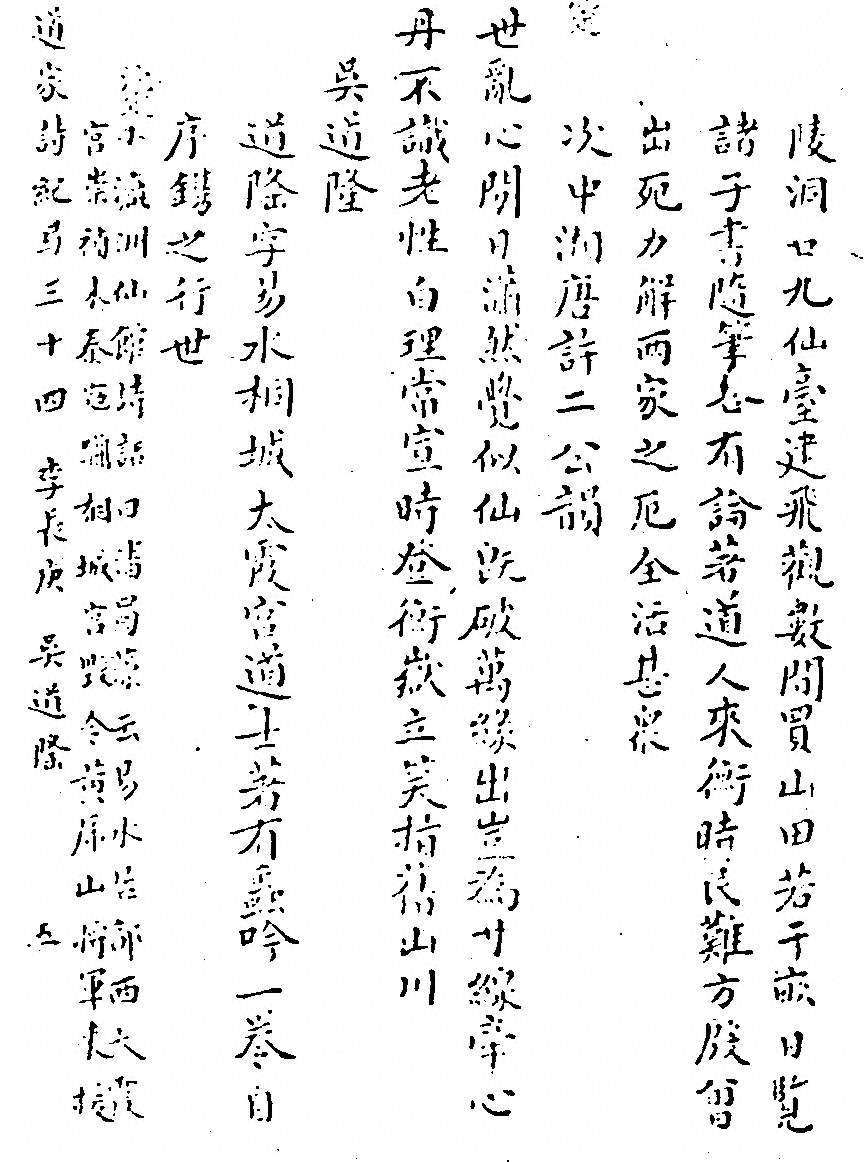 陵洞口九仙臺建飛觀數間買山田若干畝日覽
諸子書隨筆必有論著道人來衡時民難方殷曾
出死力解兩家之厄全活甚衆
次中湖唐許二公韻
世亂心閒日瀟然覺似仙既破萬緣出豈為廿線牽心
丹不識老性白理常宣時登衡嶽立笑指舊山川
吳道隆
道隆字易水桐城太霞宮道士著有蠡吟一卷自
序鐫之行世
瀛洲仙館詩話 云易水居 西太霞
宮崇祠 桐城宮 令黃 山將軍
道家詩紀 三十四 李長庚 吳道隆 五